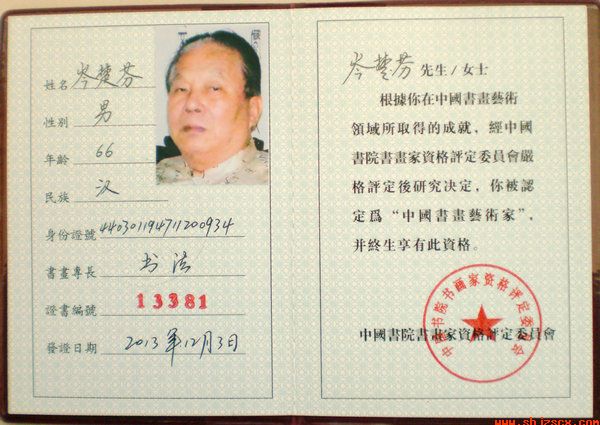 姓名 岑楚芬
性别 男
年齡 66
民族 汉
身份證號 440301194711200934
書畫專長 书法
證書編號 13381
發證日期 2013年12月3日
岑楚芬 先生/女士
根據你在中國書畫藝術
領域所取得的成就，經中國
書院書畫家資格評定委員會嚴
格評定後研究决定，你被認
定爲“中國書畫藝術家”，
并終生享有此資格。
中國書院書畫家資格評定委員會
中国书院书画家资格评定委员会
www.shjzscx.com